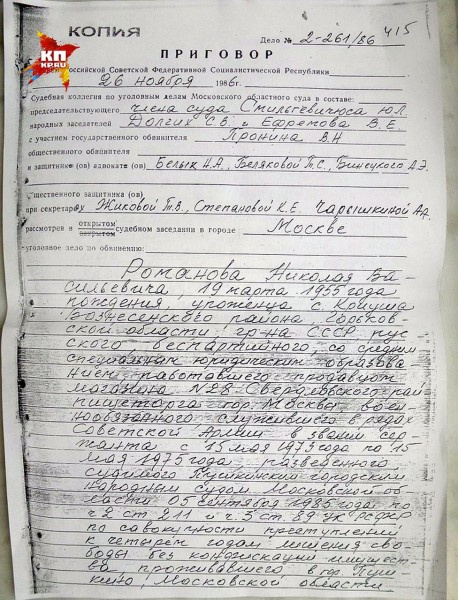 КП
KP.RU
КОПИЯ
415
Дело № 2-261/86
ПРИГОВОР
Российской Советской Федеративной Социалистической Республики
26 ноября 1986 г.
Судебная коллегия по уголовным делам Московского областного суда в составе:
председательствующего члена суда Стильгевичюса Ю.Л.
народных заседателей Долгих С.В. и Ефремова В.Е.
с участием государственного обвинителя Пронина В.Н
общественного обвинителя
и защитнике (ов) адвоката (ов) Белык Н.А., Беляковой Т.С., Бинецкого А.Э.
щественного защитника (ов)
при секретарях Жиковой Т.В., Степановой К.Е. Чарышкиной А.А.
рассмотрев в открытом закрытом судебном заседании в городе Москве
уголовное дело по обвинению:
Романова Николая Ва-
сильевича, 19 марта 1955 года
рождения, уроженца с. Криуша
Вознесенского района Горьков-
ской области, гр-на СССР, рус
ского, беспартийного, со средним
специальным юридическим образова-
нием, работавшего продавцом
магазина №28 Свердловского рай
пищеторга гор. Москвы, воен-
нообязанного, служившего в рядах
Советской Армии в звании сер-
жанта с 15 мая 1973 года по 15
мая 1975 года, разведенного
судимого Пушкинским городским
народным судом Московской об-
ласти 05 сентября 1985 года по
ч 2 ст 211 и ч. 3 ст 89 УК РСФСР
по совокупности преступлений
к четырем годам лишения сво-
боды без конфискации имущест-
ва, проживавшего в гор. Пуш
кино, Московской области.